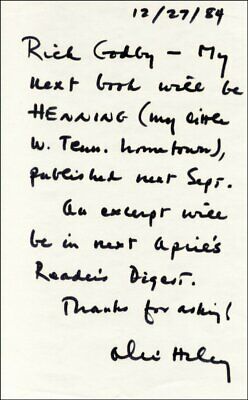 12/27/84
Rick Godby – My
next book will be
HENNING (my little
W. Tenn. hometown),
published next Sept.
An excerpt will
be in next April's
Reader's Digest.
Thanks for asking!
Alex Haley